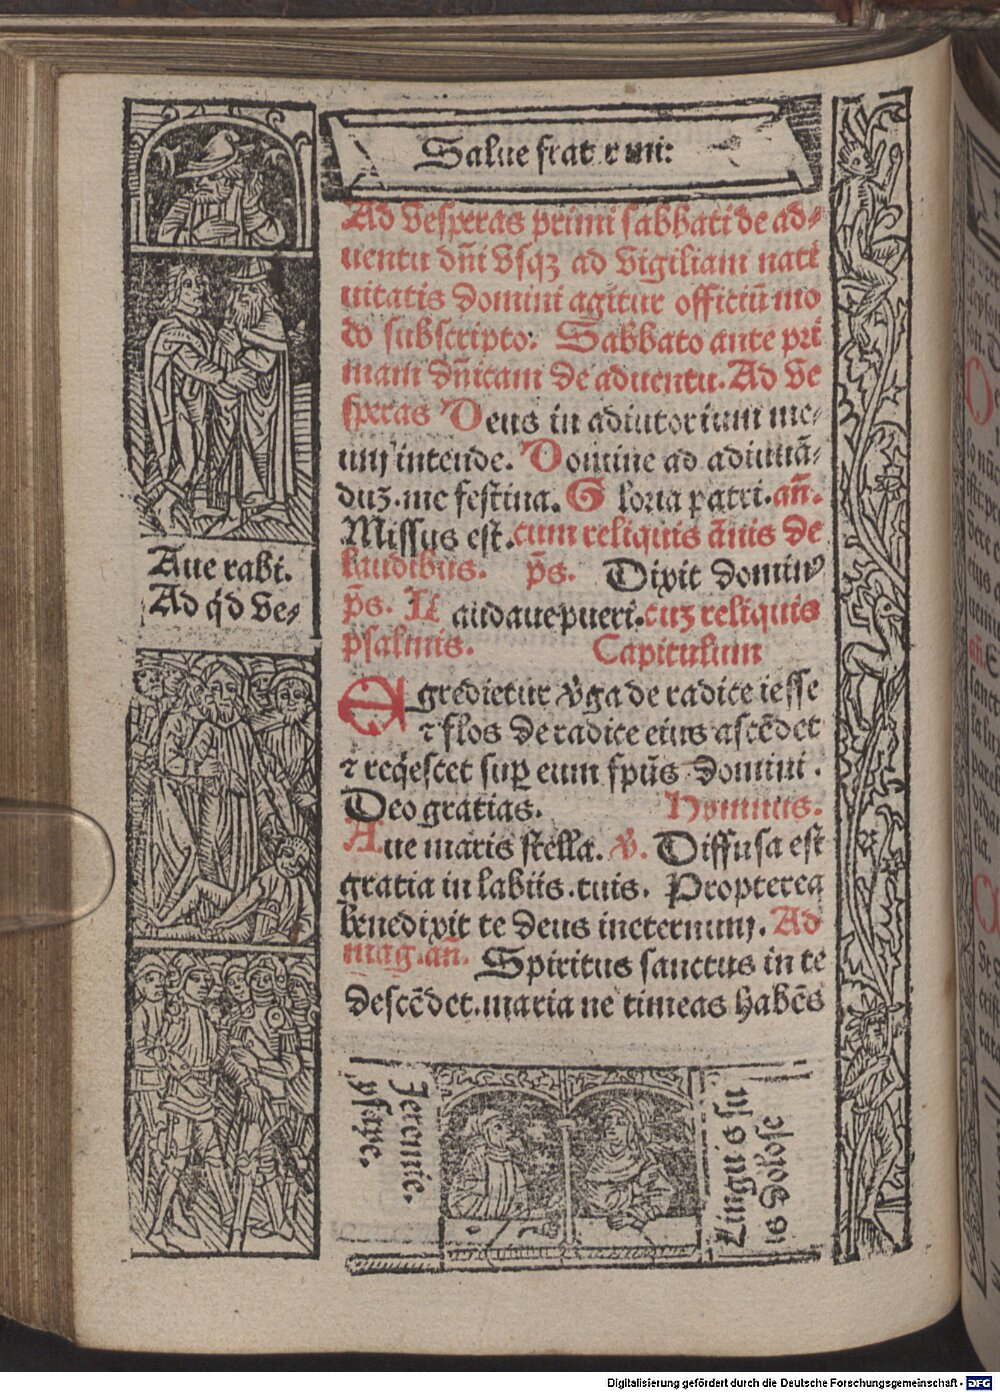 Salue frat r mi:
Ad vesperas primi sabbati de ad⸗
uentu dñi vsqꝫ ad vigiliam nati
uitatis domini agitur officiū mo
do subscripto: Sabbato ante pri
mam dñicam de aduentu. Ad ve
speras Deus in adiutorium me⸗
um intende. Domine ad adiuuā⸗
duꝫ.me festina. Gloria patri. an̄.
Missus est. cum reliquis ānis de
laudibus. p̄s. Dixit dominꝰ
p̄s. Laudate pueri. cuꝫ reliquis
psalmis. Capitulum
Egredietur v̄ga de radice iesse
⁊ flos de radice eius ascēdet
⁊ reqͥescet suꝑ eum spūs domini.
Deo gratias. Hymnus.
Aue maris stella. v̄. Diffusa est
gratia in labiis.tuis. Propterea
benedixit te deus ineternum. Ad
mag.an̄. Spiritus sanctus in te
descēdet.maria ne timeas habēs
Aue rabi.
Ad qͥd ve⸗
Jeremie.
ysaye.
Linguis su
is dolose
Digitalisierung gefördert durch die Deutsche Forschungsgemeinschaft - DFG